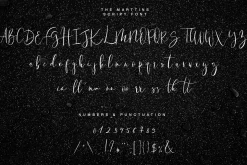 THE MARTTINE
SCRIPT FONT
ABCDEFGHIJKLMNOPQRSTUVWXYZ
abcdefghijklmnopqrstuvwxyz
ee ll nn oo rr ss th tt
NUMBERS & PUNCTUATION
0123456789